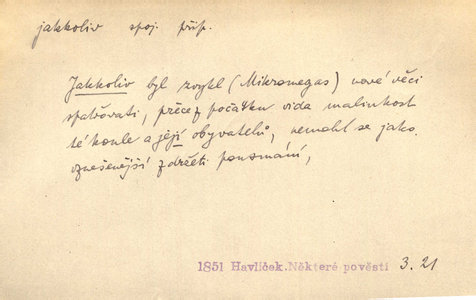 jakkoliv spoj. příp.
Jakkoliv byl zvykl (Mikromegas) nové věci
spatřovati, přece z počátku vida malinkost
té koule a její obyvatelů, nemohl se jako.
vznešenější zdržeti pousmání,
1851 Havlíček. Některé pověsti 3. 21